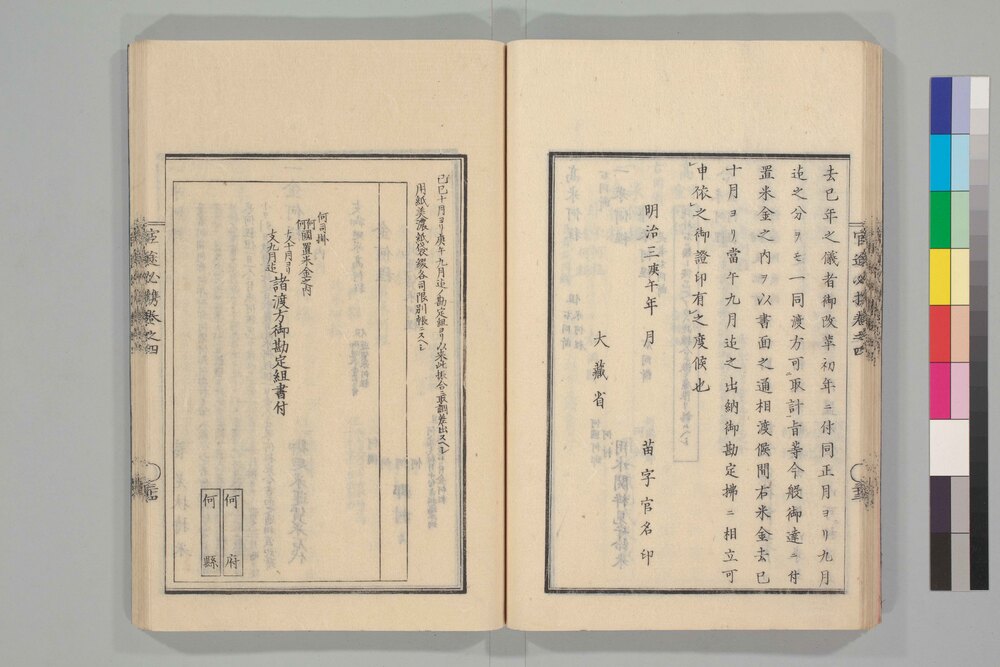 去巳年之儀者御改革初年ニ付同正月ヨリ九月
迄之分ヲモ一同渡方可取計旨等今般御達ニ付
置米金之内ヲ以書面之通相渡候間右米金去巳
十月ヨリ當午九月迄之出納御勘定拂ニ相立可
申依之御證印有之度候也
明治三庚午年 月 苗字官名印
大藏省
己巳十月ヨリ庚午九月迄ノ勘定組ヨリ以来此振合ニ取調差出スヘシ
用紙美濃紙袋綴各司限別帳ニスヘシ
何司掛
何國置米金之内
何
去巳十月ヨリ
諸渡方御勘定組書付
何府
何縣